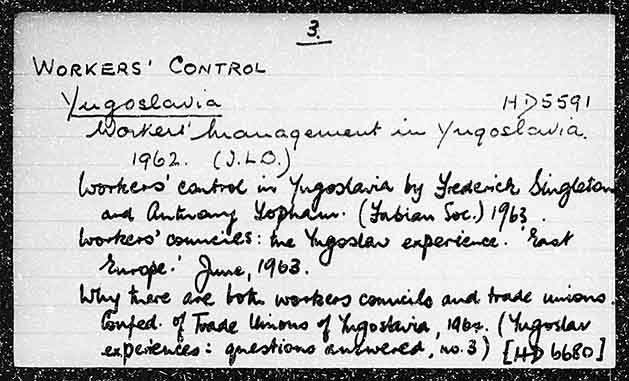 3.
WORKERS' CONTROL
Yugoslavia HD5591
Workers' management in Yugoslavia.
1962. (I.L.O.)
Workers' control in Yugoslavia by Frederick Singleton
and Anthony Topham. (Fabian Soc.) 1963.
Workers' councils: the Yugoslav experience. 'East
Europe.' June, 1963.
Why there are both workers councils and trade unions.
Confed. of Trade Unions of Yugoslavia, (Yugoslav
experiences: questions answered, no.3) [HD 6680]